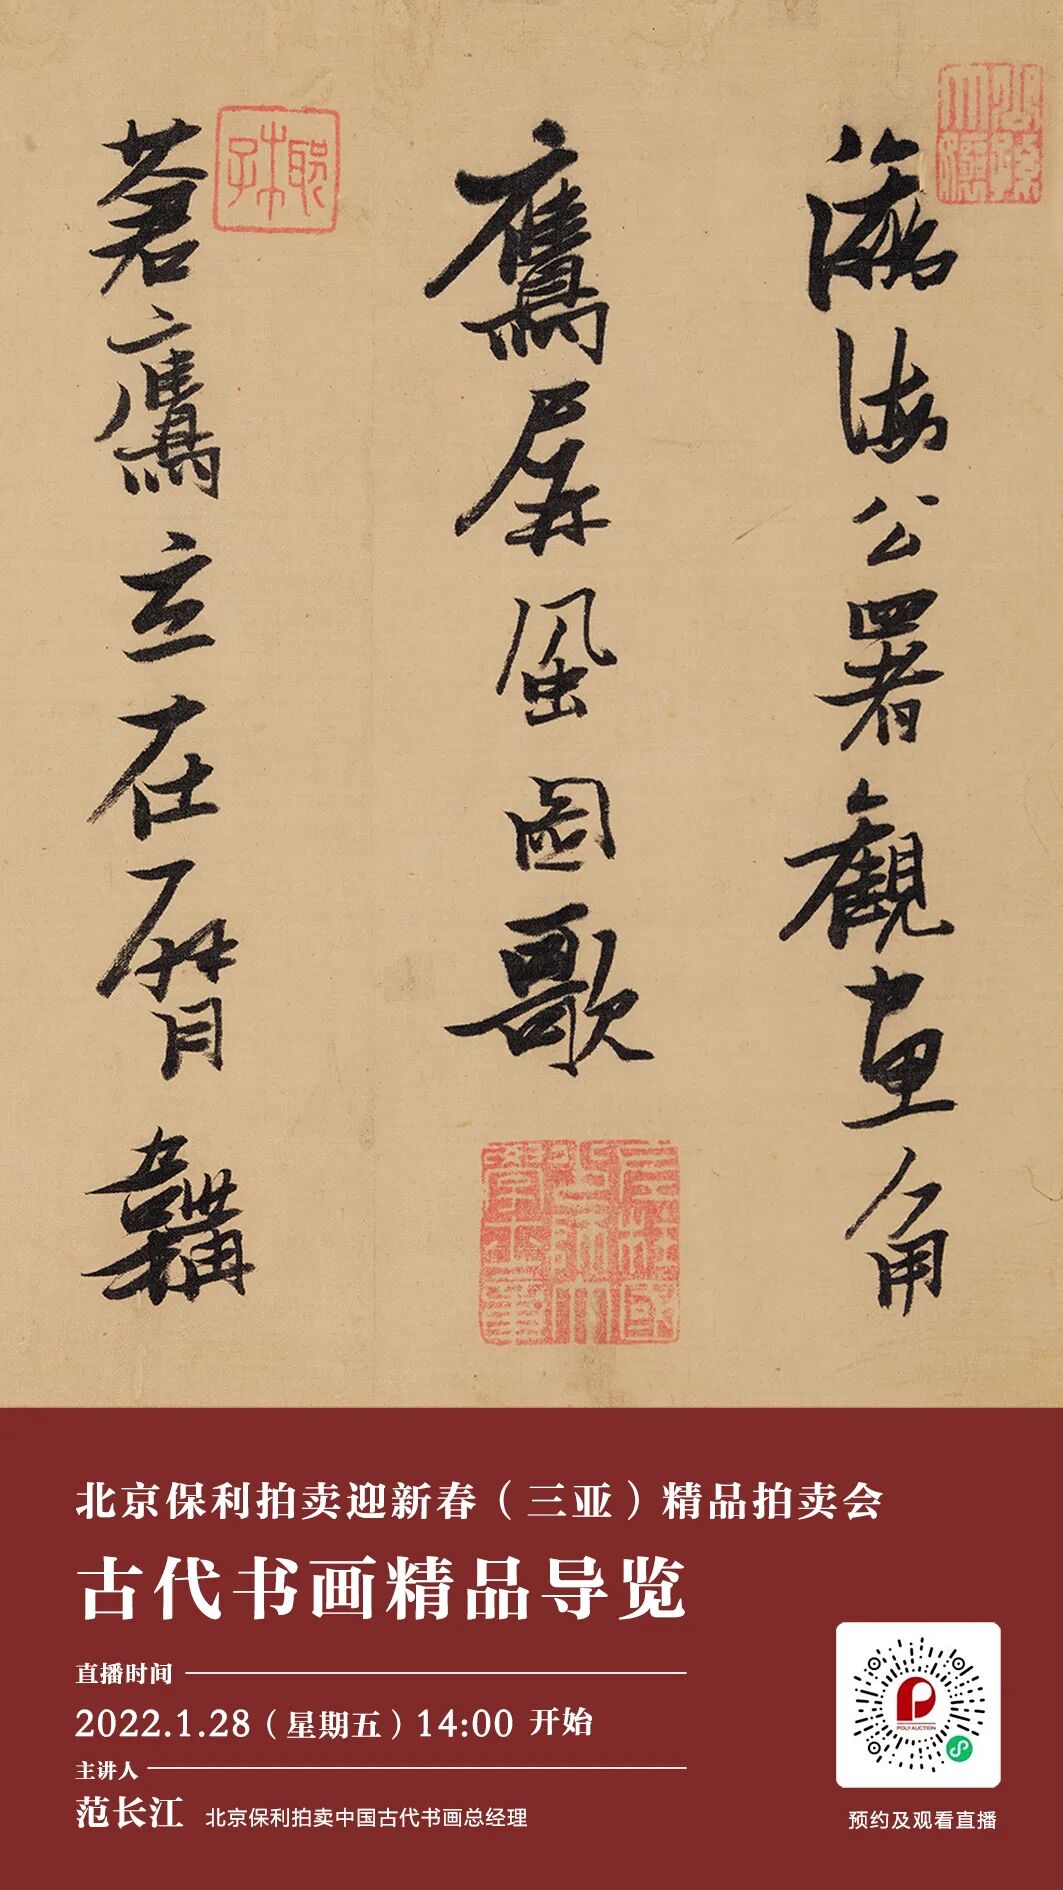 瀛海公署觀畫角
鷹屏風圖歌
蒼鷹立在臂韝
北京保利拍卖迎新春（三亚）精品拍卖会
古代书画精品导览
直播时间
2022.1.28（星期五）14:00 开始
主讲人
范长江 北京保利拍卖中国古代书画总经理
POLY AUCTION
预约及观看直播